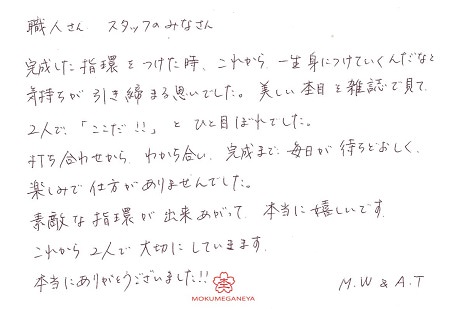 職人さん スタッフのみなさん
完成した指環をつけた時、これから一生身につけていくんだなと
気持ちが引き締まる思いでした。美しい木目を雑誌で見て、
2人で、「ここだ!!」と ひと目ぼれでした。
打ち合わせから、わかち合い、完成まで、毎日が待ちどおしく、
楽しみで仕方がありませんでした。
素敵な指環が出来あがって、本当に嬉しいです。
これから2人で大切にしていきます。
本当にありがとうございました!!
MOKUMEGANEYA
M.W & A.T